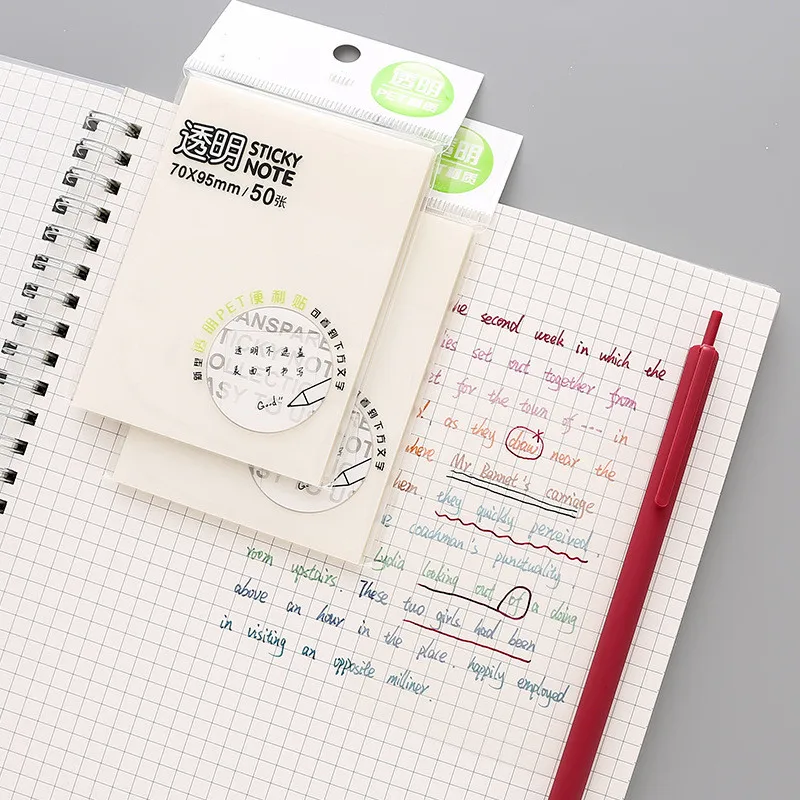 透明
PET
透明
透明 STICKY NOTE
70X95mm/50张
新型透明PET便利贴 可看到下方文字
ANSPARE
透明不遮盖
表面可书写
Good!!
看到下方文字
he second week in which the
ies set out together from
t for the town of --- in
as they draw near the
where Mr Bennet's carriage
hem. they quickly perceived.
coachman's punctuality
room upstairs. Lydia looking out of a doing
above an hour in the place. These two girls had been
in visiting an opposite milliner. happily employed